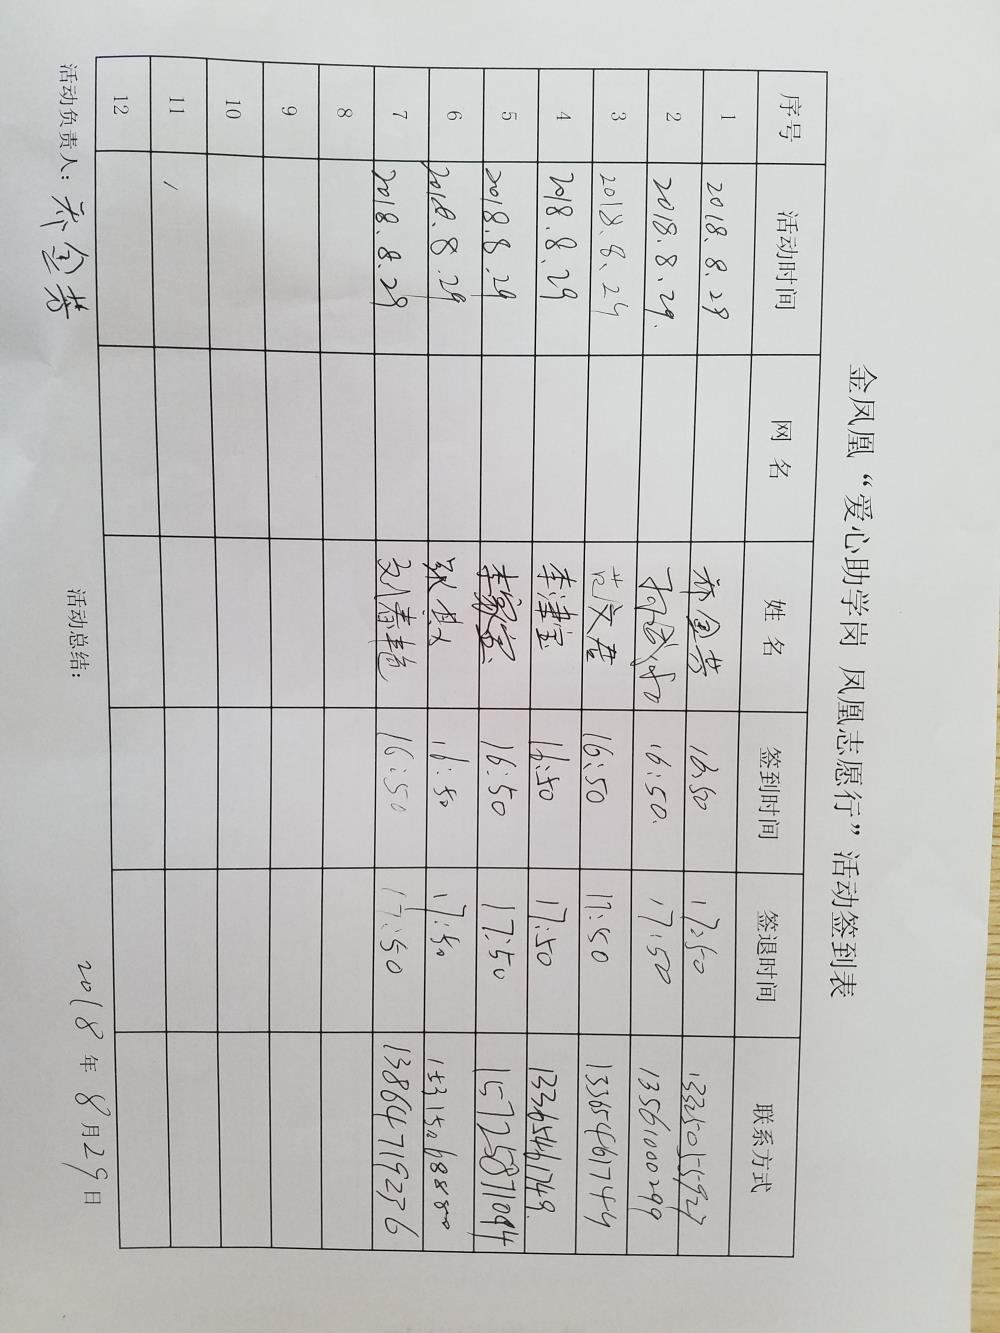 金凤凰“爱心助学岗 凤凰志愿行”活动签到表
序号 活动时间 网 名 姓 名 签到时间 签退时间 联系方式
1 2018.8.29 16:50 17:50
2 2018.8.29. 16:50. 17:50 13561000299
3 2018.8、29 16:50 17:50 13365461744
4 2018.8.29 李津宝 16:50 17:50
5 2018.8.29 李家宝 16:50 17:50 15725871094
6 2018.8.29 16:50 17:50
7 2018.8.29 刘春艳 16:50 17:50 13864719236
8
9
10
11
12
活动负责人: 活动总结: 2018年8月29日